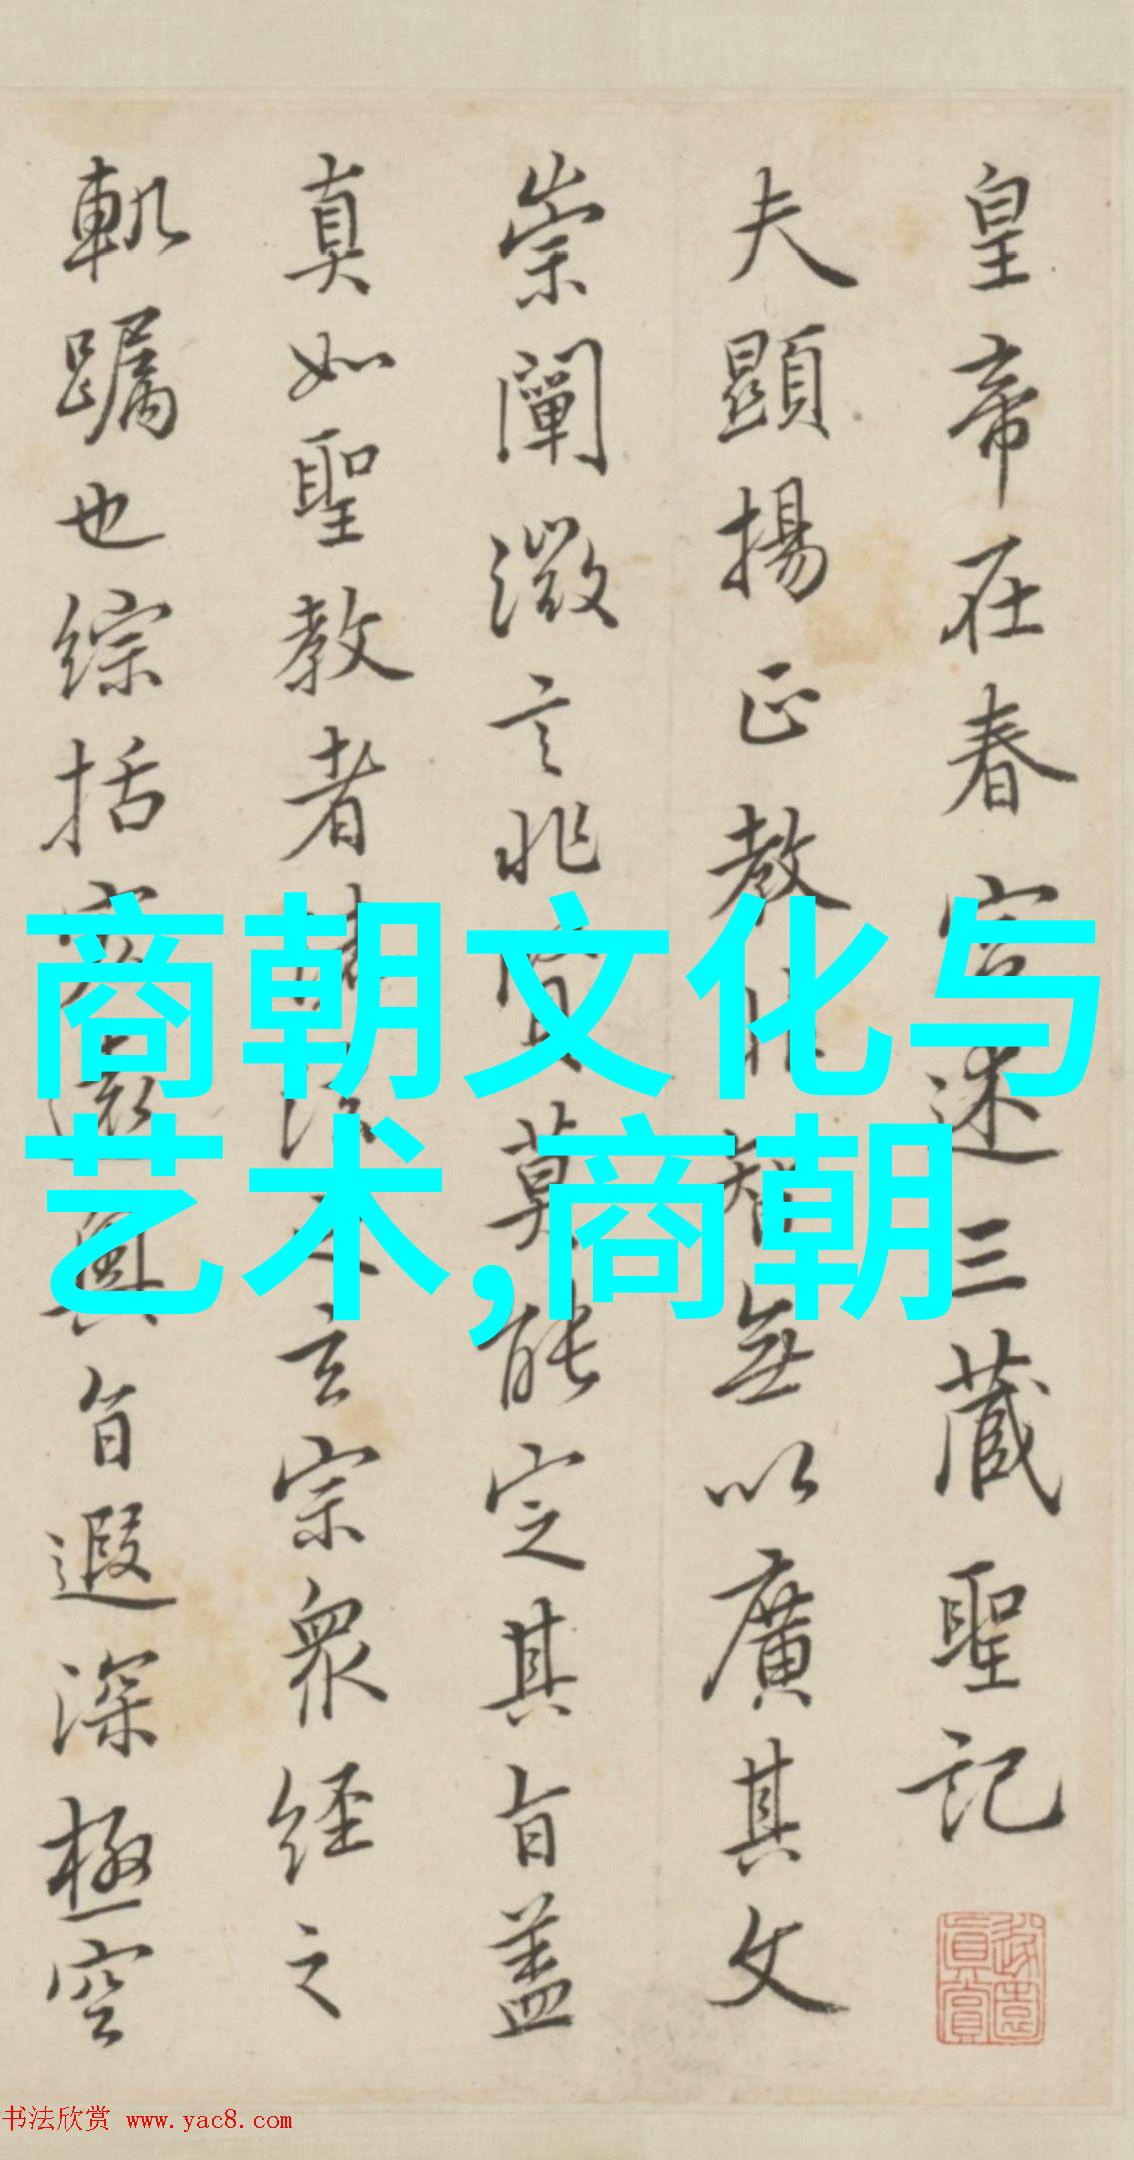 皇帝在春宫述三藏聖記
夫顯揚正教非智無以廣其文
崇闡微言非賢莫能定其旨蓋
真如聖教者諸法之玄宗眾經之
軌躅也綜括宏遠奧旨遐深極空
商朝文化与
艺术,商朝
书法欣赏 www.yac8.com